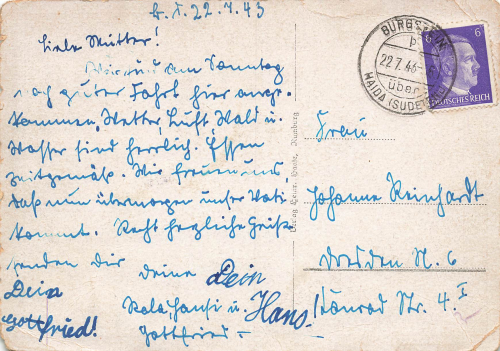 22.7.43
Liebe Mutter!
Wir sind am Sonntag
nach guter Fahrt hier ange-
kommen, Wetter, Luft, Wald u.
Wasser sind herrlich. Essen
zeitgemäß. Wir freuen uns
daß nun übermorgen unser Vati
kommt. Recht herzliche Grüße
senden Dir
Deine
Dein
Gottfried!
Dein
Hans!
Hansi u.
Gottfried
22.7.43
über
HAIDA (SUDETENL)
6
6
DEUTSCHES REICH
Frau
Johanne Reinhardt
Dresden N. 6
Konrad Str. 4 I